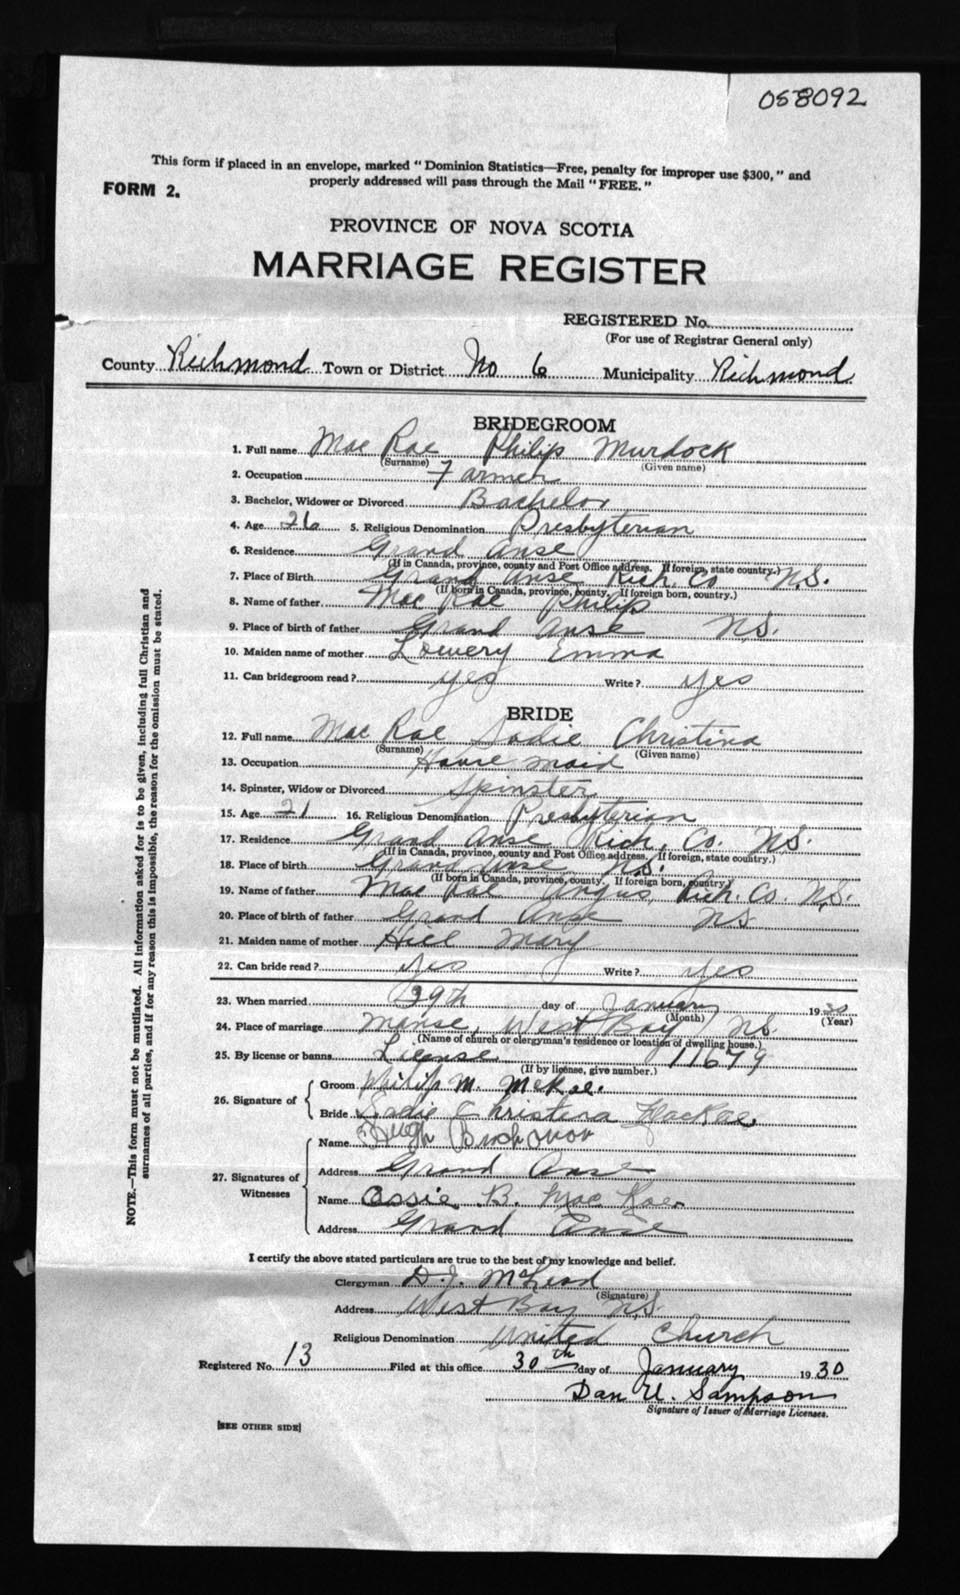 058092
This form if placed in an envelope, marked "Dominion Statistics—Free, penalty for improper use $300," and
properly addressed will pass through the Mail "FREE."
FORM 2.
PROVINCE OF NOVA SCOTIA
MARRIAGE REGISTER
REGISTERED No.
(For use of Registrar General only)
County Richmond Town or District No 6 Municipality Richmond
BRIDEGROOM
1. Full name Mac Rae Philip Murdock
(Surname) (Given name)
2. Occupation Farmer
3. Bachelor, Widower or Divorced Bachelor
4. Age 26 5. Religious Denomination Presbyterian
6. Residence Grand Anse
(If in Canada, province, county and Post Office address. If foreign, state country.)
7. Place of Birth Grand Anse Rich. Co N.S.
(If born in Canada, province, county. If foreign born, country.)
8. Name of father Mac Rae Philip
9. Place of birth of father Grand Anse N.S.
10. Maiden name of mother Lowery Emma
11. Can bridegroom read? yes Write? yes
BRIDE
12. Full name Mac Rae Sadie Christina
(Surname) (Given name)
13. Occupation House maid
14. Spinster, Widow or Divorced Spinster
15. Age 21 16. Religious Denomination Presbyterian
17. Residence Grand Anse Rich. Co. N.S.
(If in Canada, province, county and Post Office address. If foreign, state country.)
18. Place of birth Grand Anse N.S.
(If born in Canada, province, county. If foreign born, country.)
19. Name of father Mac Rae Angus, Rich. Co. N.S.
20. Place of birth of father Grand Anse N.S.
21. Maiden name of mother Hill Mary
22. Can bride read? Yes Write? yes
23. When married 29th day of January 1930
(Month) (Year)
24. Place of marriage Manse, West Bay, N.S.
(Name of church or clergyman's residence or location of dwelling house.)
25. By license or banns License 11679
(If by license, give number.)
26. Signature of
Groom Philip M. McRae.
Bride Sadie Christina MacRae.
27. Signatures of Witnesses
Name Hugh
Address Grand Anse
Name Cassie B. Mac Rae.
Address Grand Anse
I certify the above stated particulars are true to the best of my knowledge and belief.
Clergyman D. J. McLeod
(Signature)
Address West Bay N.S.
Religious Denomination United Church
Registered No. 13 Filed at this office 30th day of January 1930
Dan U. Sampson
Signature of Issuer of Marriage Licenses.
[SEE OTHER SIDE]
NOTE.—This form must not be mutilated. All information asked for is to be given, including full Christian and
surnames of all parties, and if for any reason this is impossible, the reason for the omission must be stated.